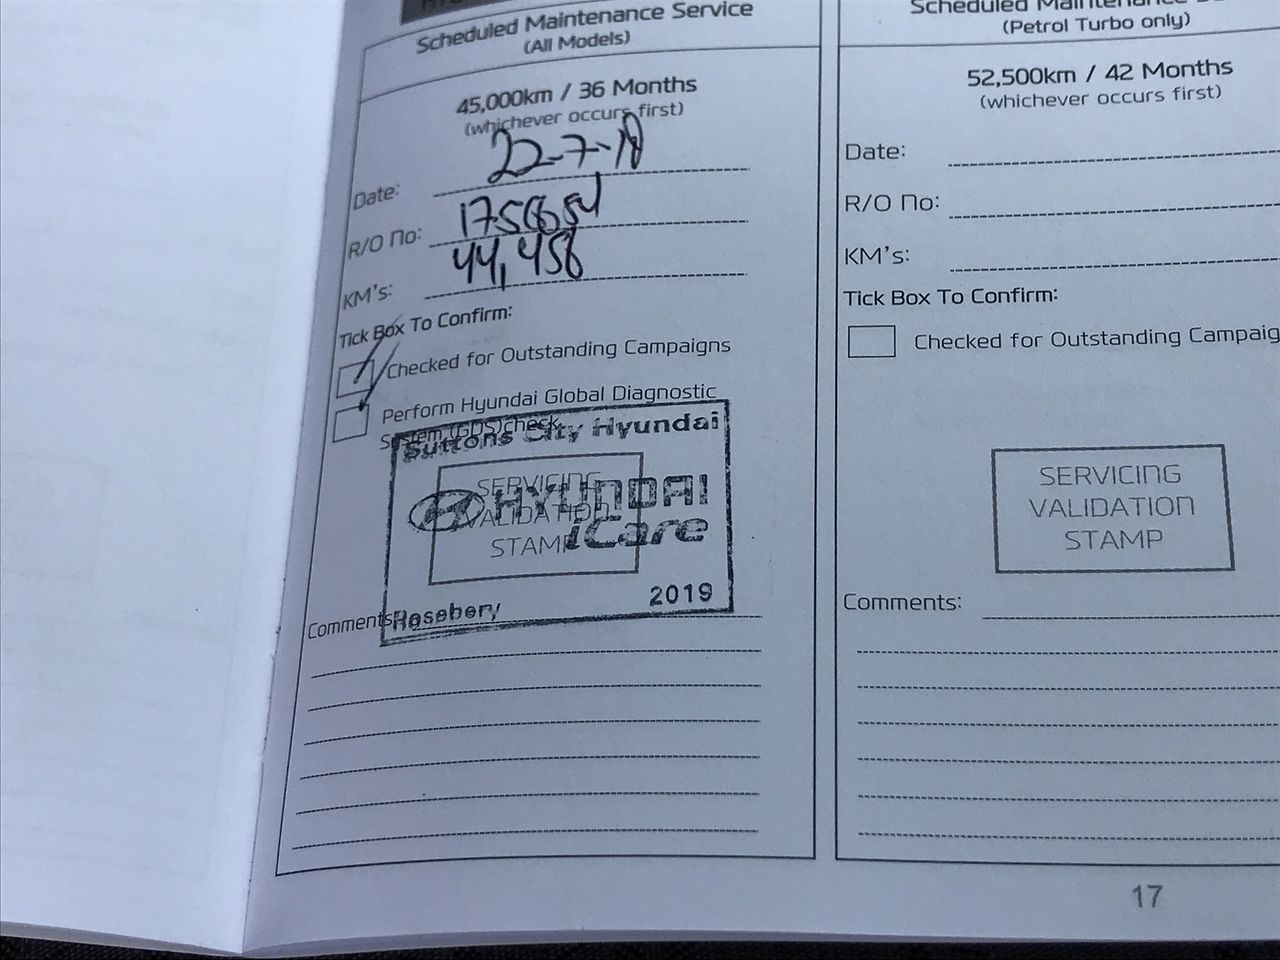 Scheduled Maintenance Service
(All Models)
45,000km / 36 Months
(whichever occurs first)
Date: 22-7-19
R/O No:
KM's: 44,458
Tick Box To Confirm:
Checked for Outstanding Campaigns
Perform Hyundai Global Diagnostic
System (GDS)check
Suttons City Hyundai
SERVICING
VALIDATION
STAMP
HYUNDAI
iCare
Rosebery 2019
Comments:
Scheduled Maintenance
(Petrol Turbo only)
52,500km / 42 Months
(whichever occurs first)
Date:
R/O No:
KM's:
Tick Box To Confirm:
Checked for Outstanding Campaig
SERVICING
VALIDATION
STAMP
Comments:
17